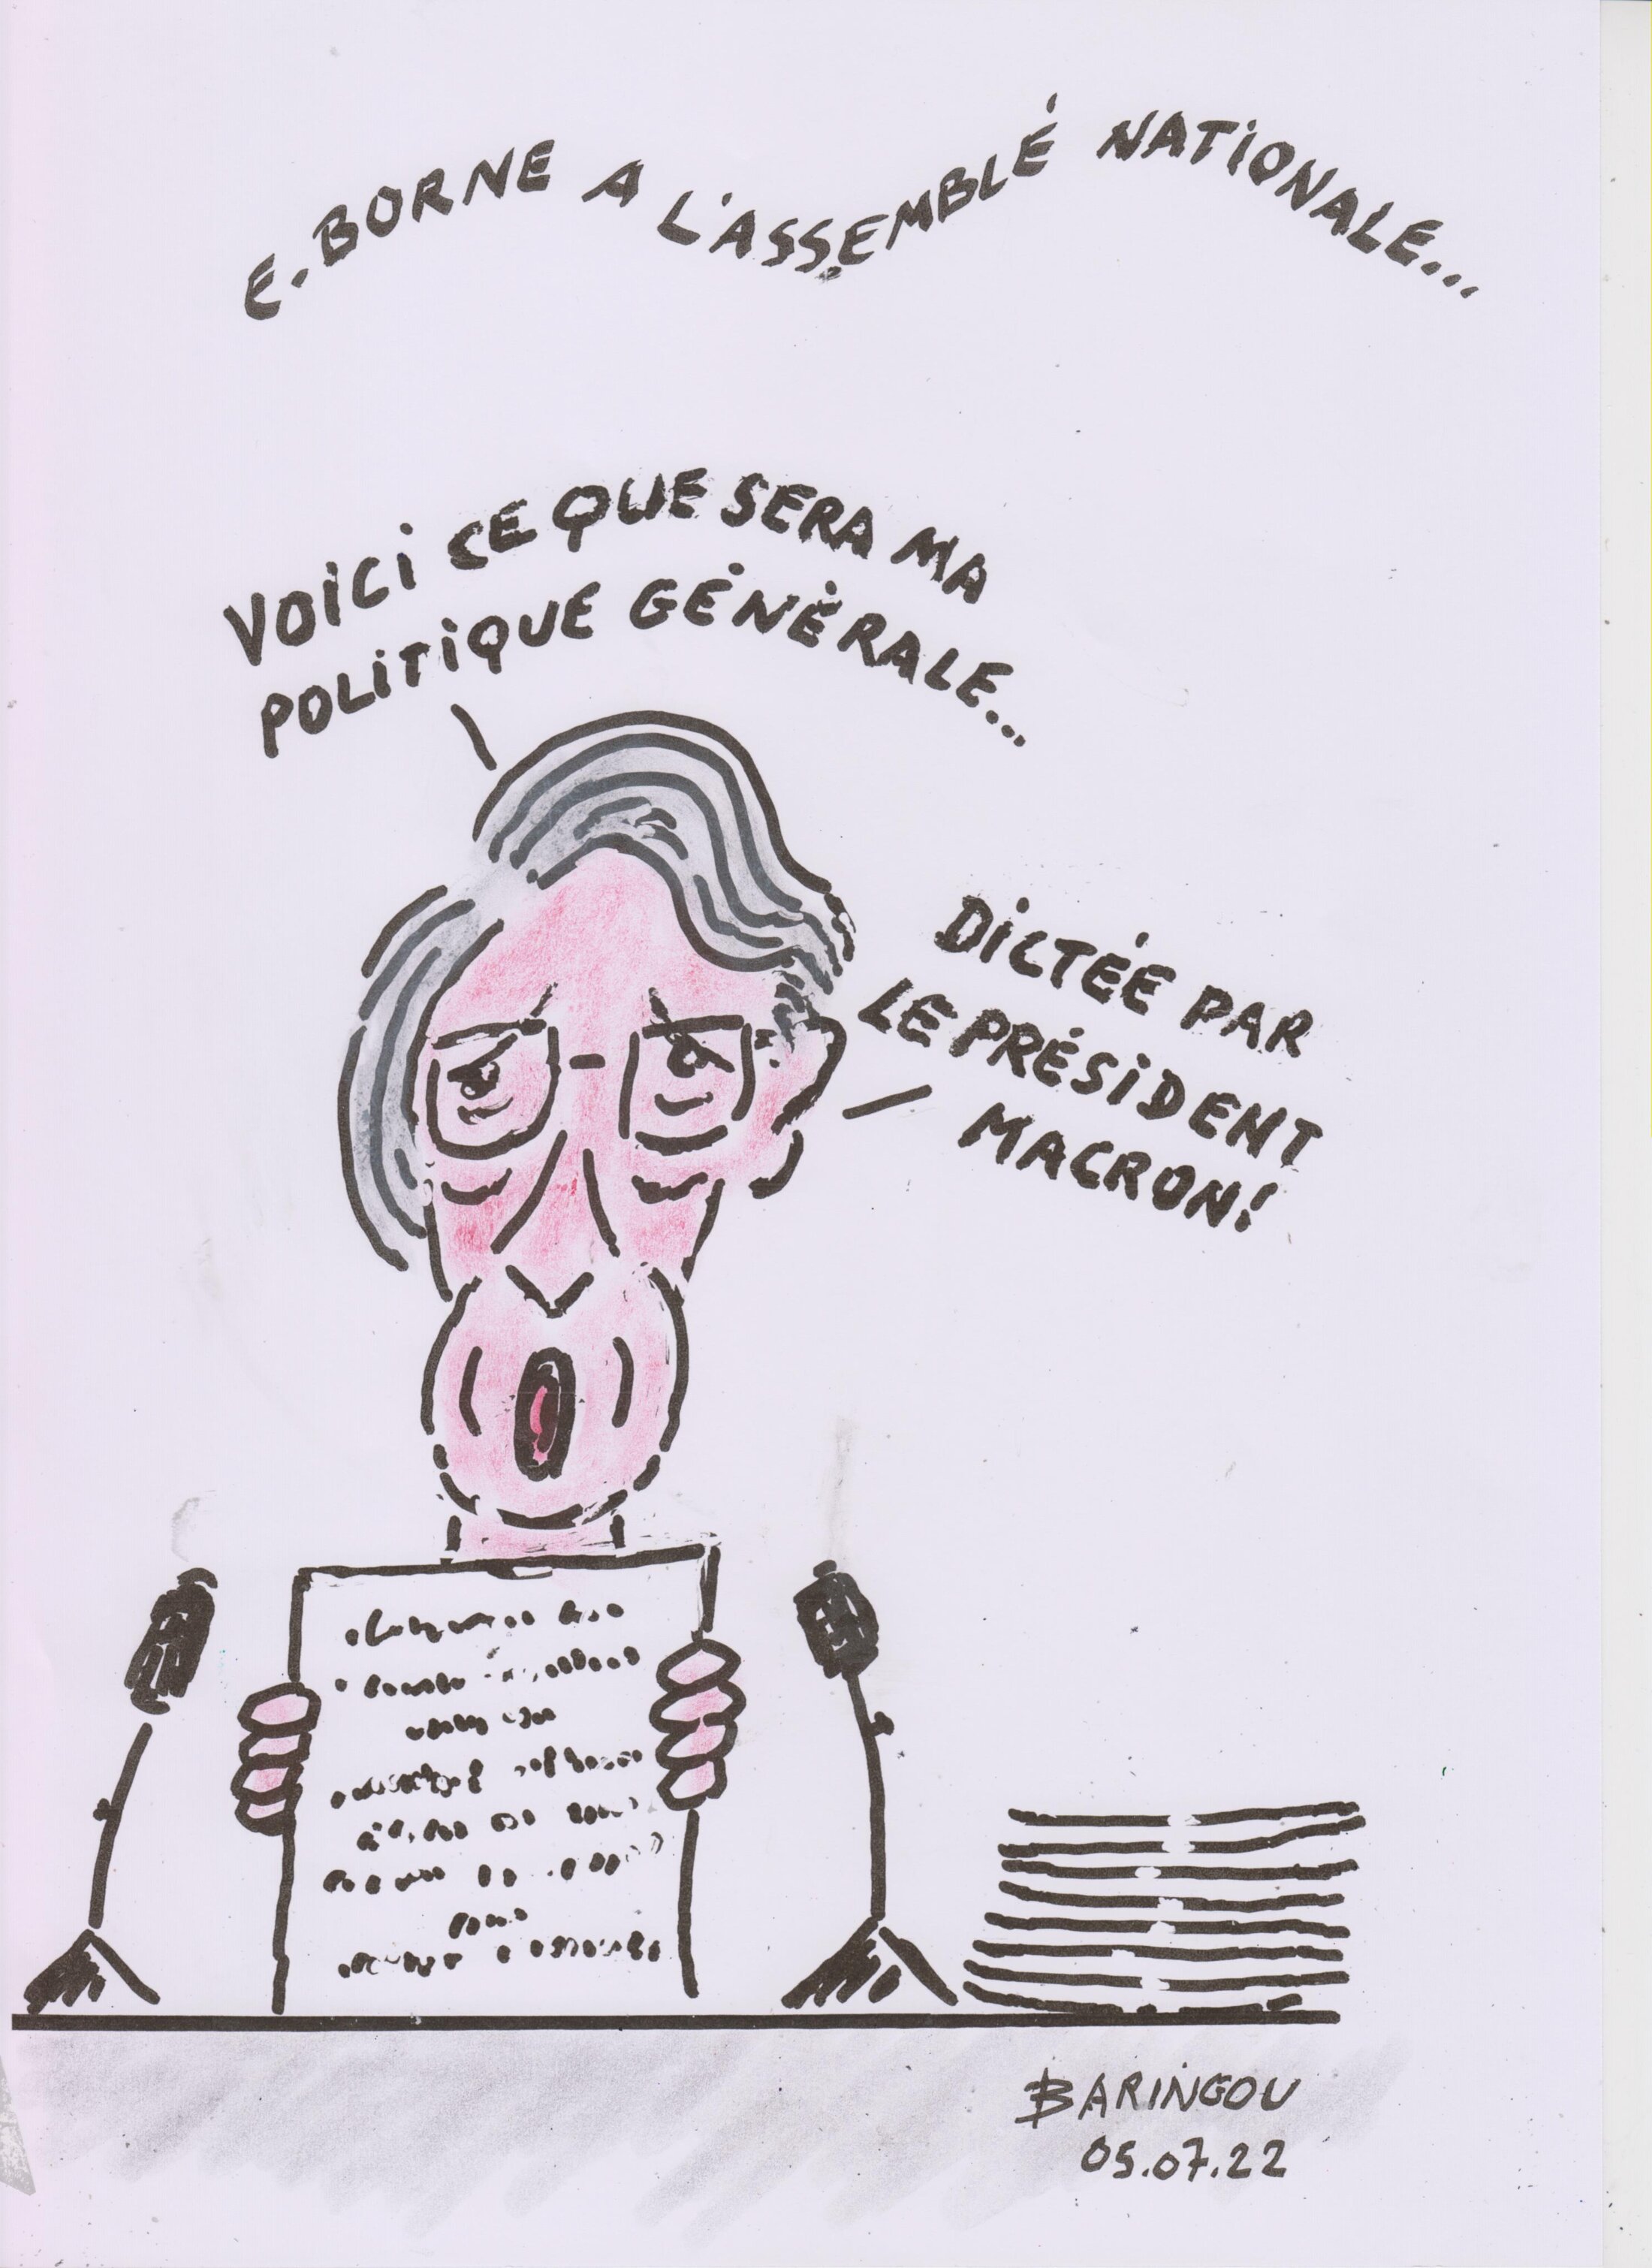 E. BORNE A L'ASSEMBLÉ NATIONALE...
VOICI CE QUE SERA MA
POLITIQUE GÉNÉRALE...
DICTÉE PAR
LE PRÉSIDENT
MACRON!
BARINGOU
05.07.22